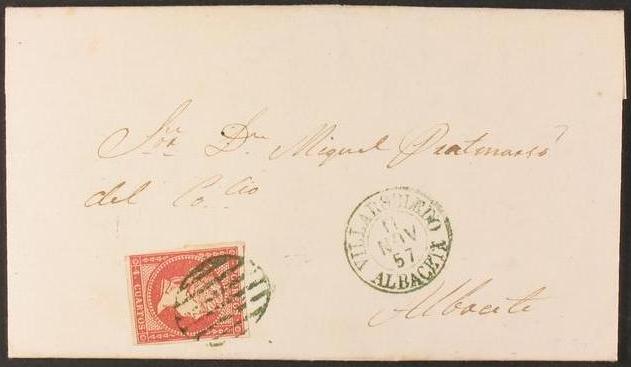 Sor. Dn. Miguel
del Co.cio
VILLARROLEDO
11
NOV
57
ALBACETE
Albacete
4 CUARTOS